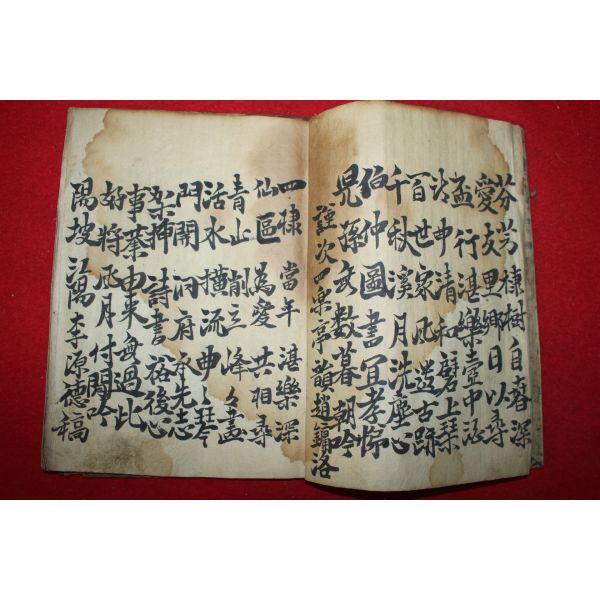 芬芳棣樹自春深
愛友里鄉日以尋
盃行湛樂壺中
詩申清和琴上琴
百世家風遺古跡
千秋溪月洗塵心
伯仲圖書宜孝悌
兒孫無數暮朝吟
謹次四樂亭韻趙鏞洛
四棣當年湛樂深
仙區為愛共相尋
青山削立峰〻盃
活水橫流曲〻琴
門開洞府承先志
架揷詩書裕後心
事業由來無過比
好將風月付閒吟
陽坡 李源德稿